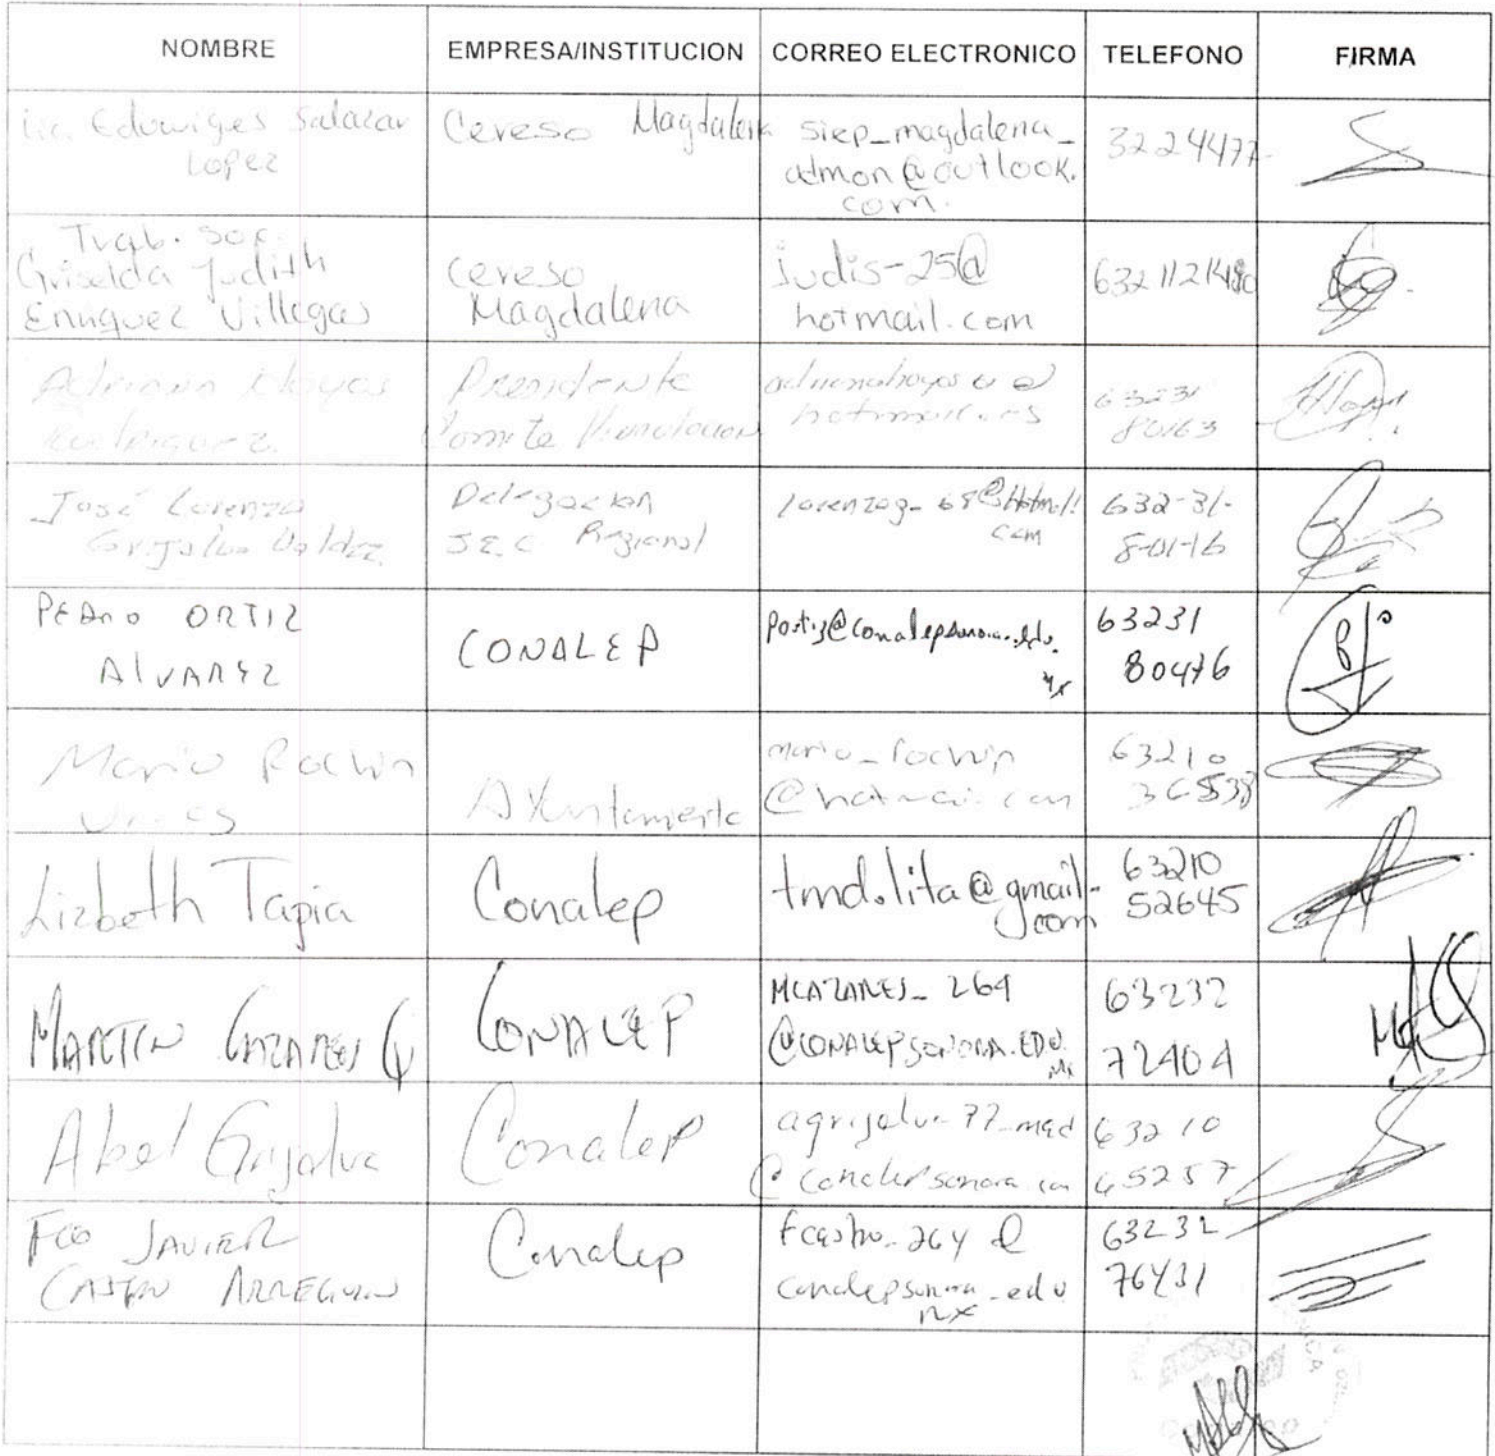 NOMBRE EMPRESA/INSTITUCION CORREO ELECTRONICO TELEFONO FIRMA
Lic. Edowiges Salazar
Lopez
Cereso Magdalena
siep_magdalena_
admon@outlook.
com.
3224477
Trab. Soc.
Griselda Judith
Enriquez Villegas
Cereso
Magdalena
judis-25@
hotmail.com
632 1121480
Adriana Hoyos
Rodriguez
Presidente
Comite
adrianahoyos
hotmail.es
63231
80163
José Lorenzo
Grijalva Valdez
Delegacion
SEC Regional
lorenzog_68@Hotmail
com
632-31-
8-01-16
PEDRO ORTIZ
ALVAREZ
CONALEP
portiz@conalepsonora.edu.
mx
63231
80476
Mario Rochin
Ayuntamiento
mario_rochin
@hotmail.com
63210
36538
Lizbeth Tapia
Conalep
tmd.lita@gmail.
com
63210
52645
MARTIN CAZARES
CONALEP
MCAZARES_264
@CONALEPSONORA.EDU.
Mx
63232
72404
Abel Grijalva
Conalep
agrijalva_77_mag
@conalepsonora.com
63210
65257
Fco JAVIER
CASTRO ARREGUIN
Conalep
fcastro_264@
conalepsonora.edu
mx
63232
76431